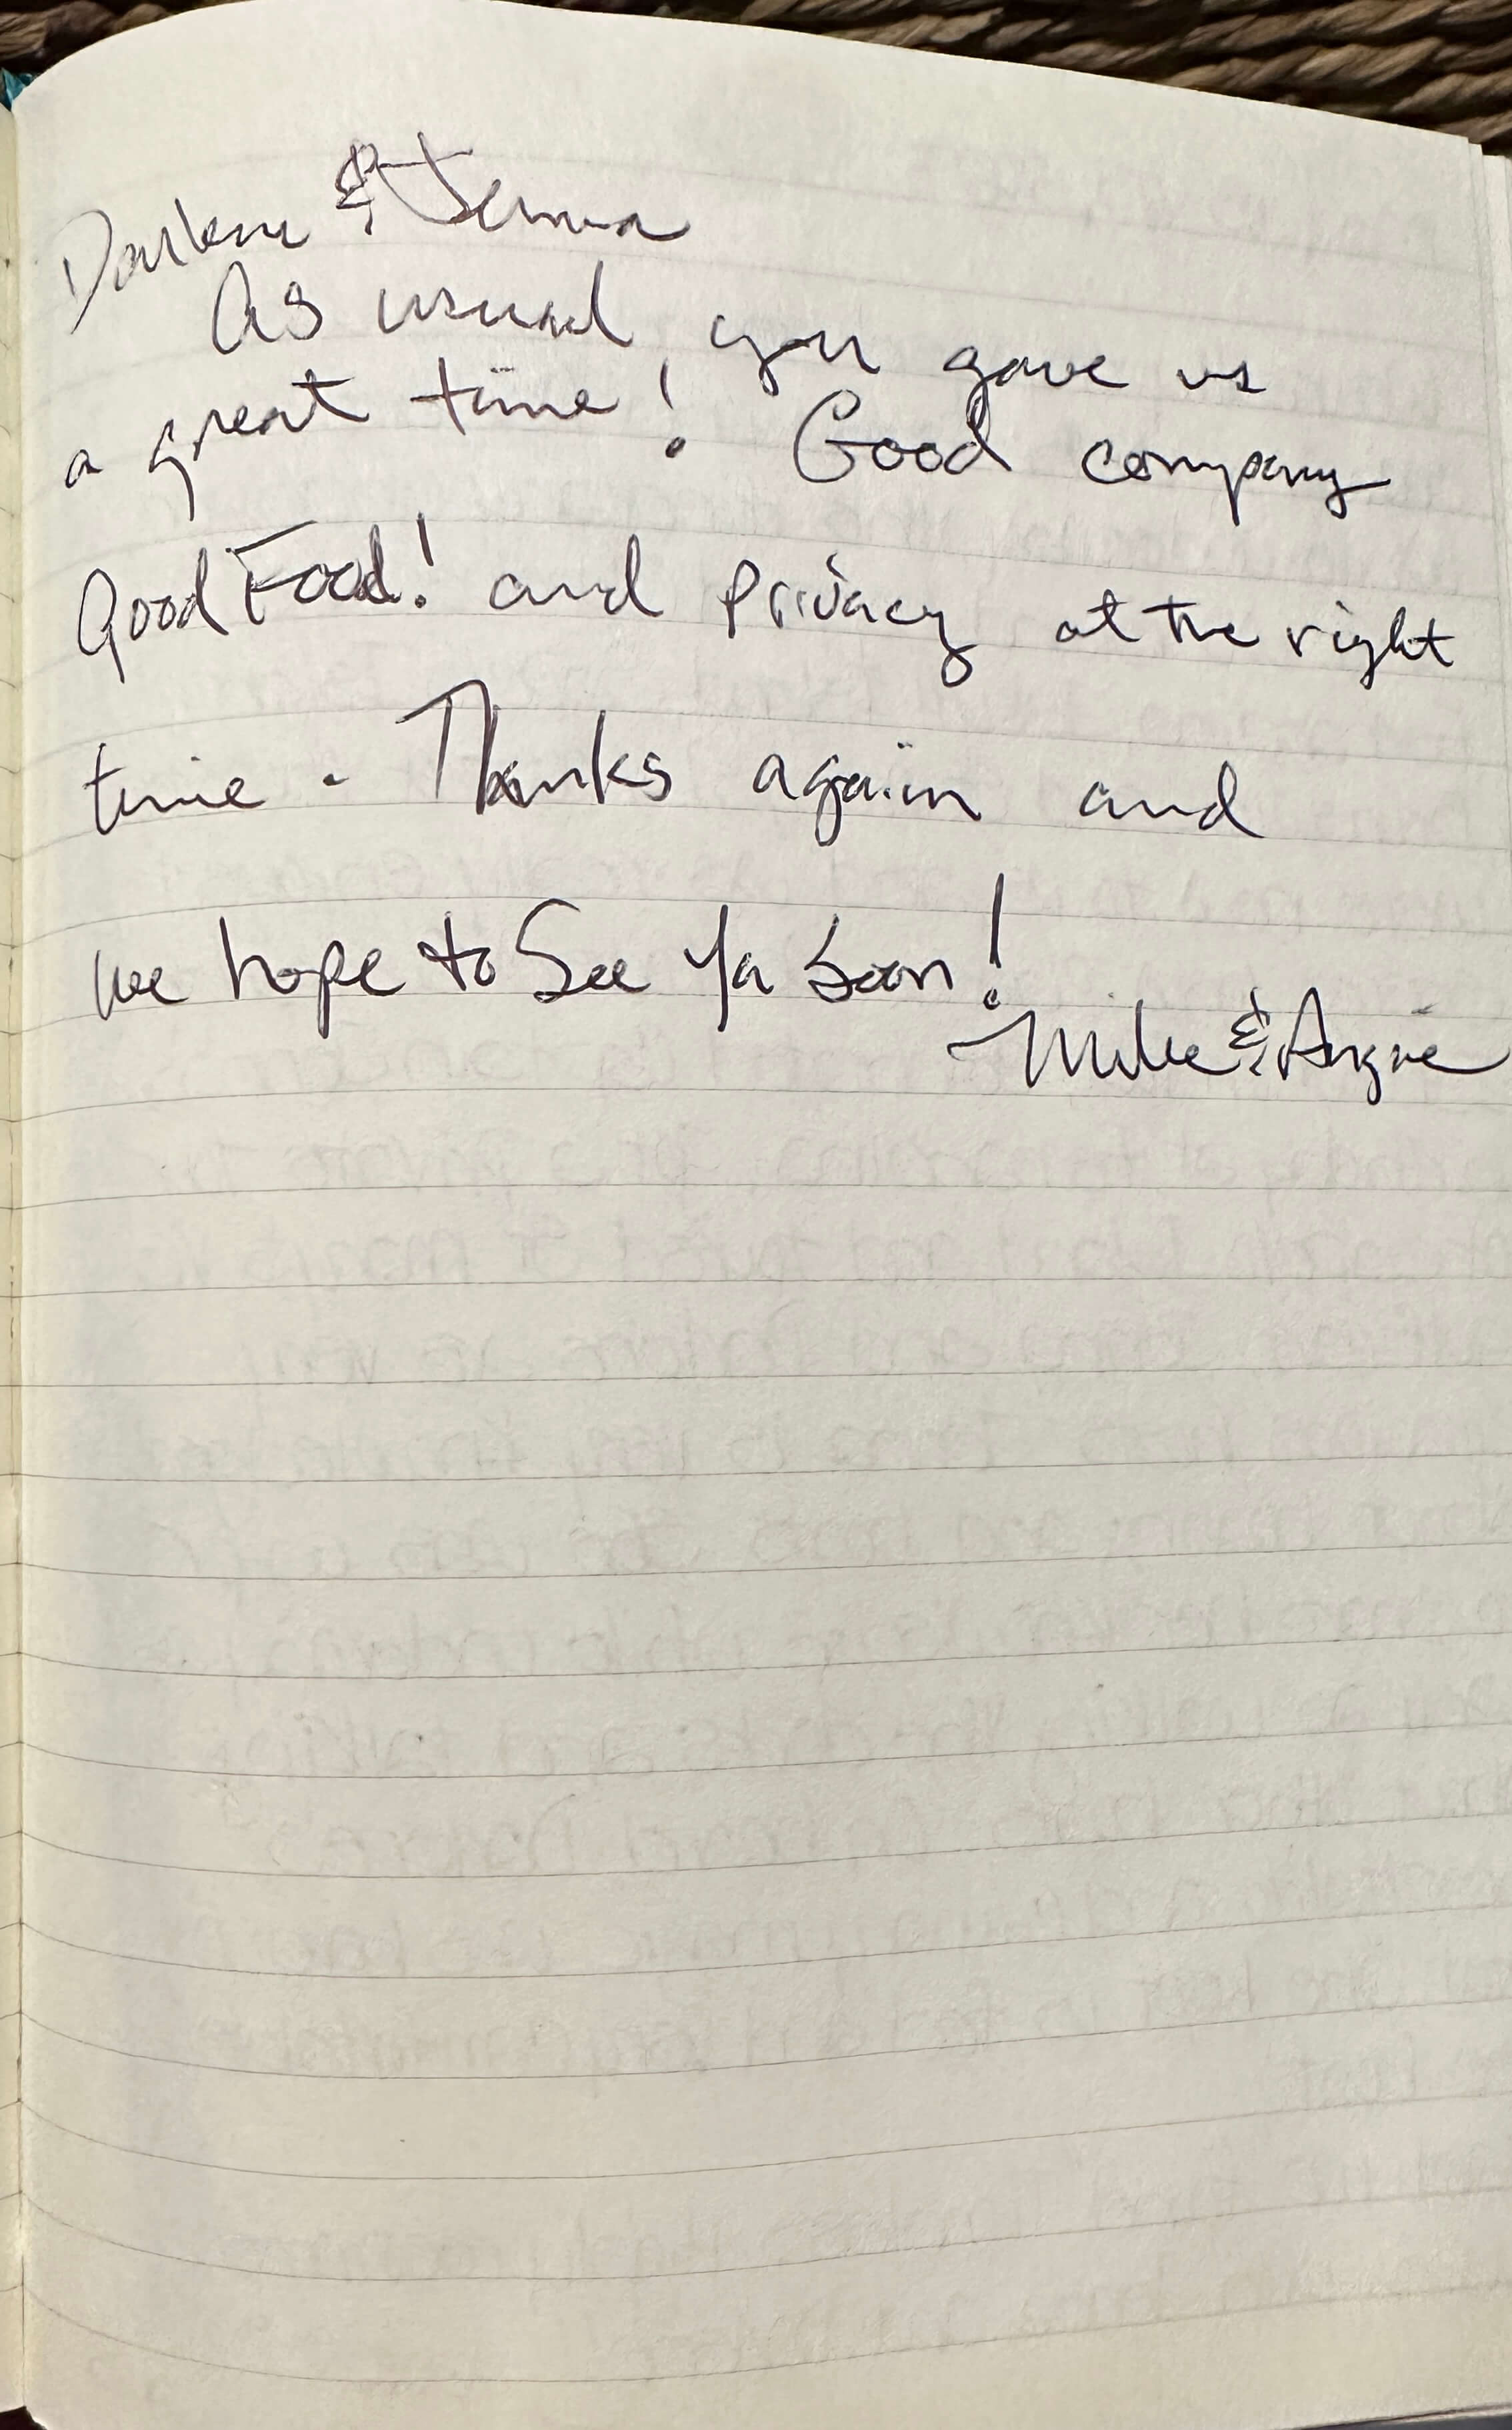 Darlene & Jenna
As usual, you gave us
a great time! Good company
Good Food! and privacy at the right
time. Thanks again and
we hope to See Ya Soon!
Mike & Angie